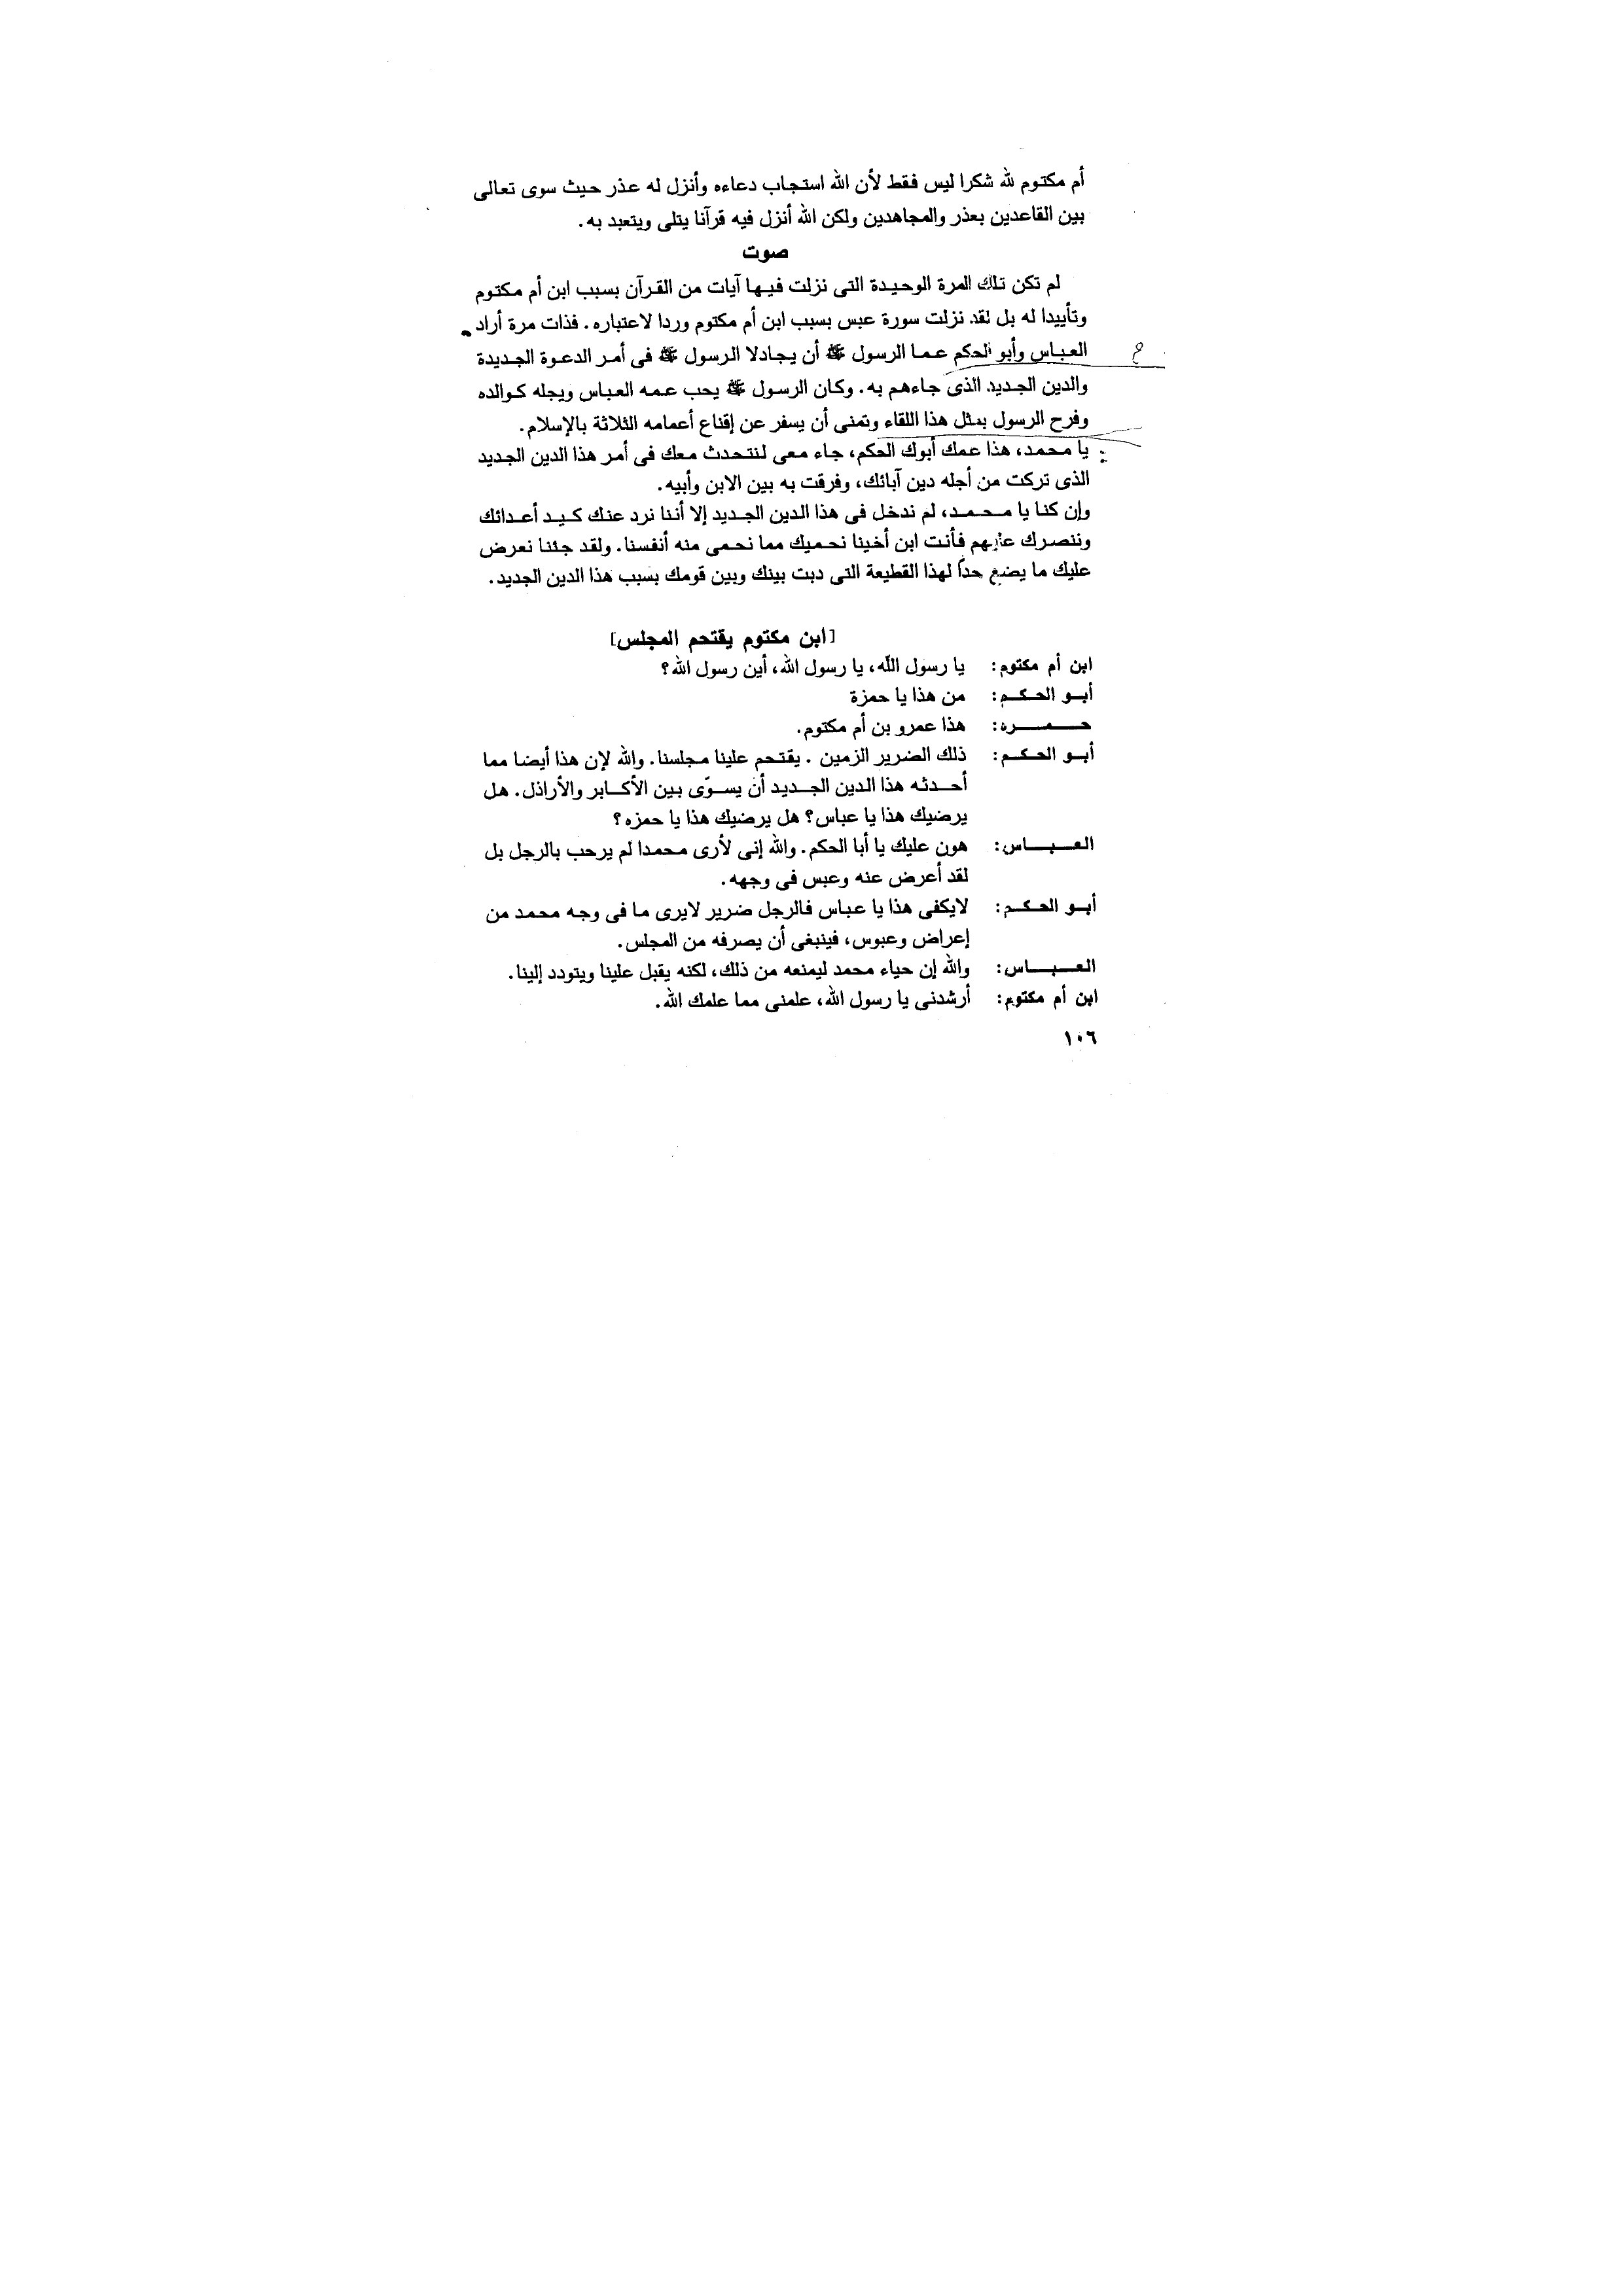 أم مكتوم لله شكرا ليس فقط لأن الله استجاب دعاءه وأنزل له عذر حيث سوى تعالى
بين القاعدين بعذر والمجاهدين ولكن الله أنزل فيه قرآنا يتلى ويتعبد به.
صوت
لم تكن تلك المرة الوحيدة التى نزلت فيها آيات من القرآن بسبب ابن أم مكتوم
وتأييدا له بل لقد نزلت سورة عبس بسبب ابن أم مكتوم وردا لاعتباره. فذات مرة أراد
العباس وأبو الحكم عما الرسول ﷺ أن يجادلا الرسول ﷺ فى أمر الدعوة الجديدة
والدين الجديد الذى جاءهم به. وكان الرسول ﷺ يحب عمه العباس ويجله كوالده
وفرح الرسول بمثل هذا اللقاء وتمنى أن يسفر عن إقناع أعمامه الثلاثة بالإسلام.
يا محمد، هذا عمك أبوك الحكم، جاء معى لنتحدث معك فى أمر هذا الدين الجديد
الذى تركت من أجله دين آبائك، وفرقت به بين الابن وأبيه.
وإن كنا يا محمد، لم ندخل فى هذا الدين الجديد إلا أننا نرد عنك كيد أعدائك
وننصرك عليهم فأنت ابن أخينا نحميك مما نحمى منه أنفسنا. ولقد جئنا نعرض
عليك ما يضع حداً لهذا القطيعة التى دبت بينك وبين قومك بسبب هذا الدين الجديد.
[ابن مكتوم يقتحم المجلس]
ابن أم مكتوم: يا رسول الله، يا رسول الله، أين رسول الله؟
أبو الحكم: من هذا يا حمزة
حمزه: هذا عمرو بن أم مكتوم.
أبو الحكم: ذلك الضرير الزمين . يقتحم علينا مجلسنا. والله لإن هذا أيضا مما
أحدثه هذا الدين الجديد أن يسوّى بين الأكابر والأراذل. هل
يرضيك هذا يا عباس؟ هل يرضيك هذا يا حمزه؟
العباس: هون عليك يا أبا الحكم. والله إنى لأرى محمدا لم يرحب بالرجل بل
لقد أعرض عنه وعبس فى وجهه.
أبو الحكم: لايكفى هذا يا عباس فالرجل ضرير لايرى ما فى وجه محمد من
إعراض وعبوس، فينبغى أن يصرفه من المجلس.
العباس: والله إن حياء محمد ليمنعه من ذلك، لكنه يقبل علينا ويتودد إلينا.
ابن أم مكتوم: أرشدنى يا رسول الله، علمنى مما علمك الله.
١٠٦